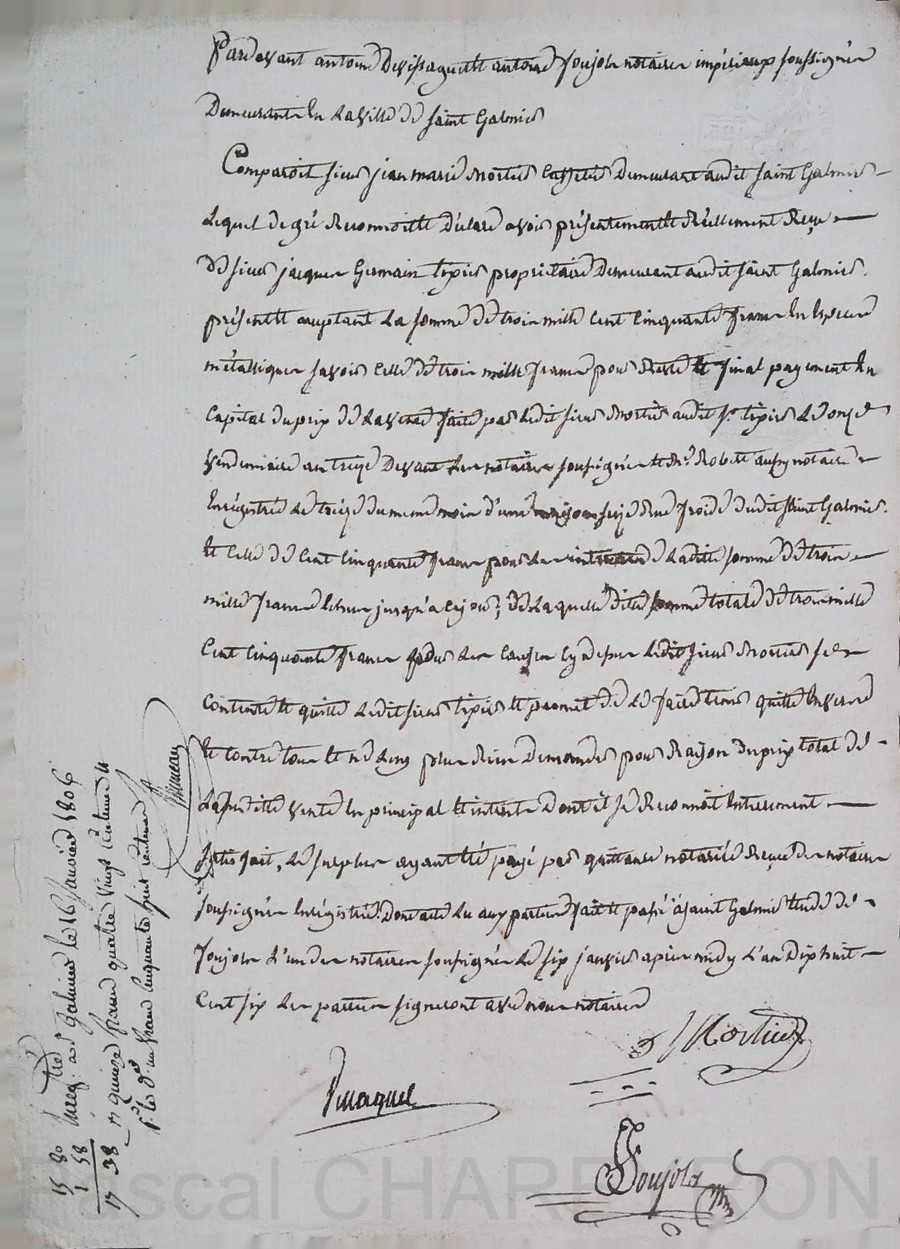 Pardevant antoine Devissaguet et antoine Foujols notaires impériaux soussignés
Demeurants En La Ville de saint Galmier
Comparoit sieur jean marie Mortier Demeurant audit saint Galmier
Lequel de gré Reconnoit et Déclare avoir présentement et Réellement Reçu
De sieur jacques Germain tixier propriétaire Demeurant audit saint Galmier
présent et acceptant La somme de trois mille Cent Cinquante francs En Especes
métalliques savoir Celle de trois mille francs pour Reste et final payement En
Capital du prix de La vente faite par Ledit sieur Mortier audit Sr tixier Le onze
Vendemiaire an treize Devant Les notaires soussignés et Me Robert aussy notaire
Enregistré Le treize du meme mois d'une maison size Rue froide dudit saint Galmier
Et Celle de Cent Cinquante francs pour Les interets de Ladite somme de trois
mille francs Echus jusqu'a Ce jour, De Laquelle dite somme totale de trois mille
Cent Cinquante francs pour Les Causes Cy dessus Ledit sieur Mortier se
Contente et quitte Ledit sieur tixier et promet de Le faire tenir quitte Envers
Et Contre tous et ne Luy plus Rien Demander pour Raison du prix total de
La susdite vente En principal et interets Dont il se Reconnoit Entierement
satisfait, Le surplus ayant Eté payé par quittance notariée Reçue Les notaires
soussignés Enregistrée. Dont acte Lu aux parties fait et passé à saint Galmier Etude de
Foujols L'un des notaires soussignés Le six janvier apres midy L'an Dix huit
Cent six Les parties signeront avec nous notaires
Mortier
Foujols
Enregtré à St Galmier le 16 Janvier 1806
Rs quinze francs quatre vingt centimes et
pr le Dme un franc cinquante huit centimes
15 80
1 58
17 38
Pascal CHARBILLON